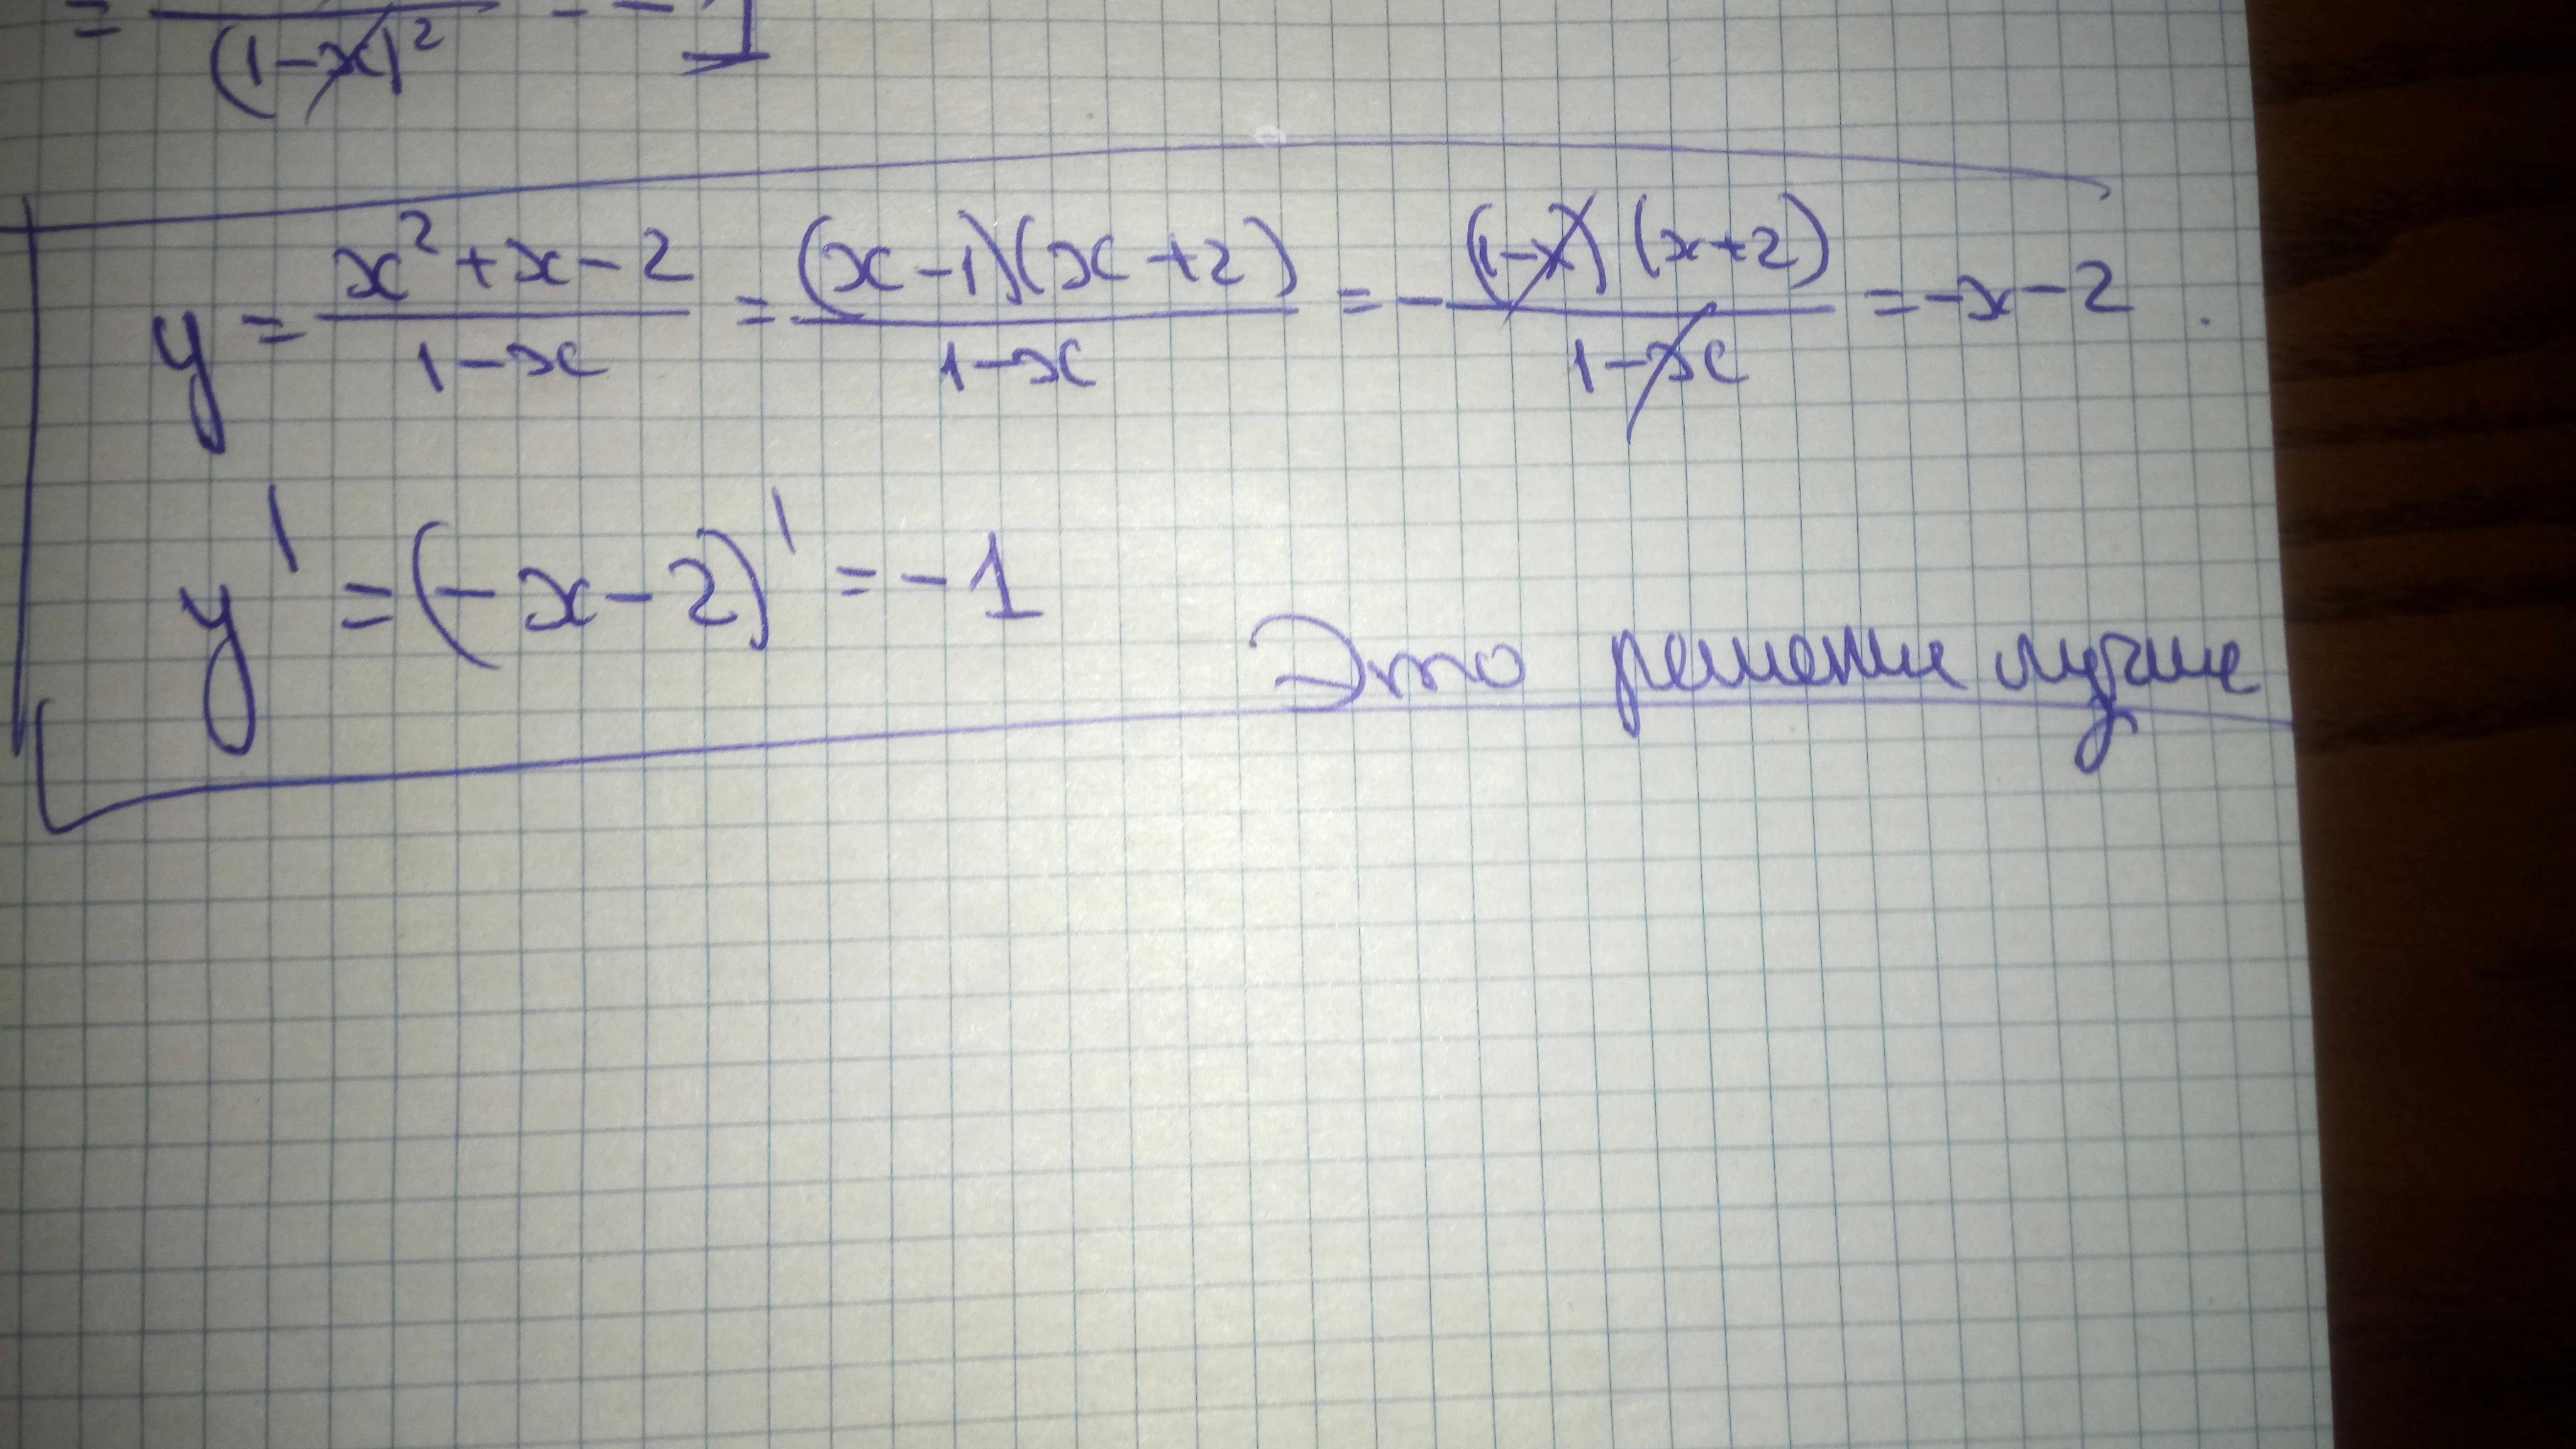 = (1-x)² = -1
y = x²+x-2 / 1-x = (x-1)(x+2) / 1-x = - (1-x)(x+2) / 1-x = -x-2.
y' = (-x-2)' = -1
Это решение лучше